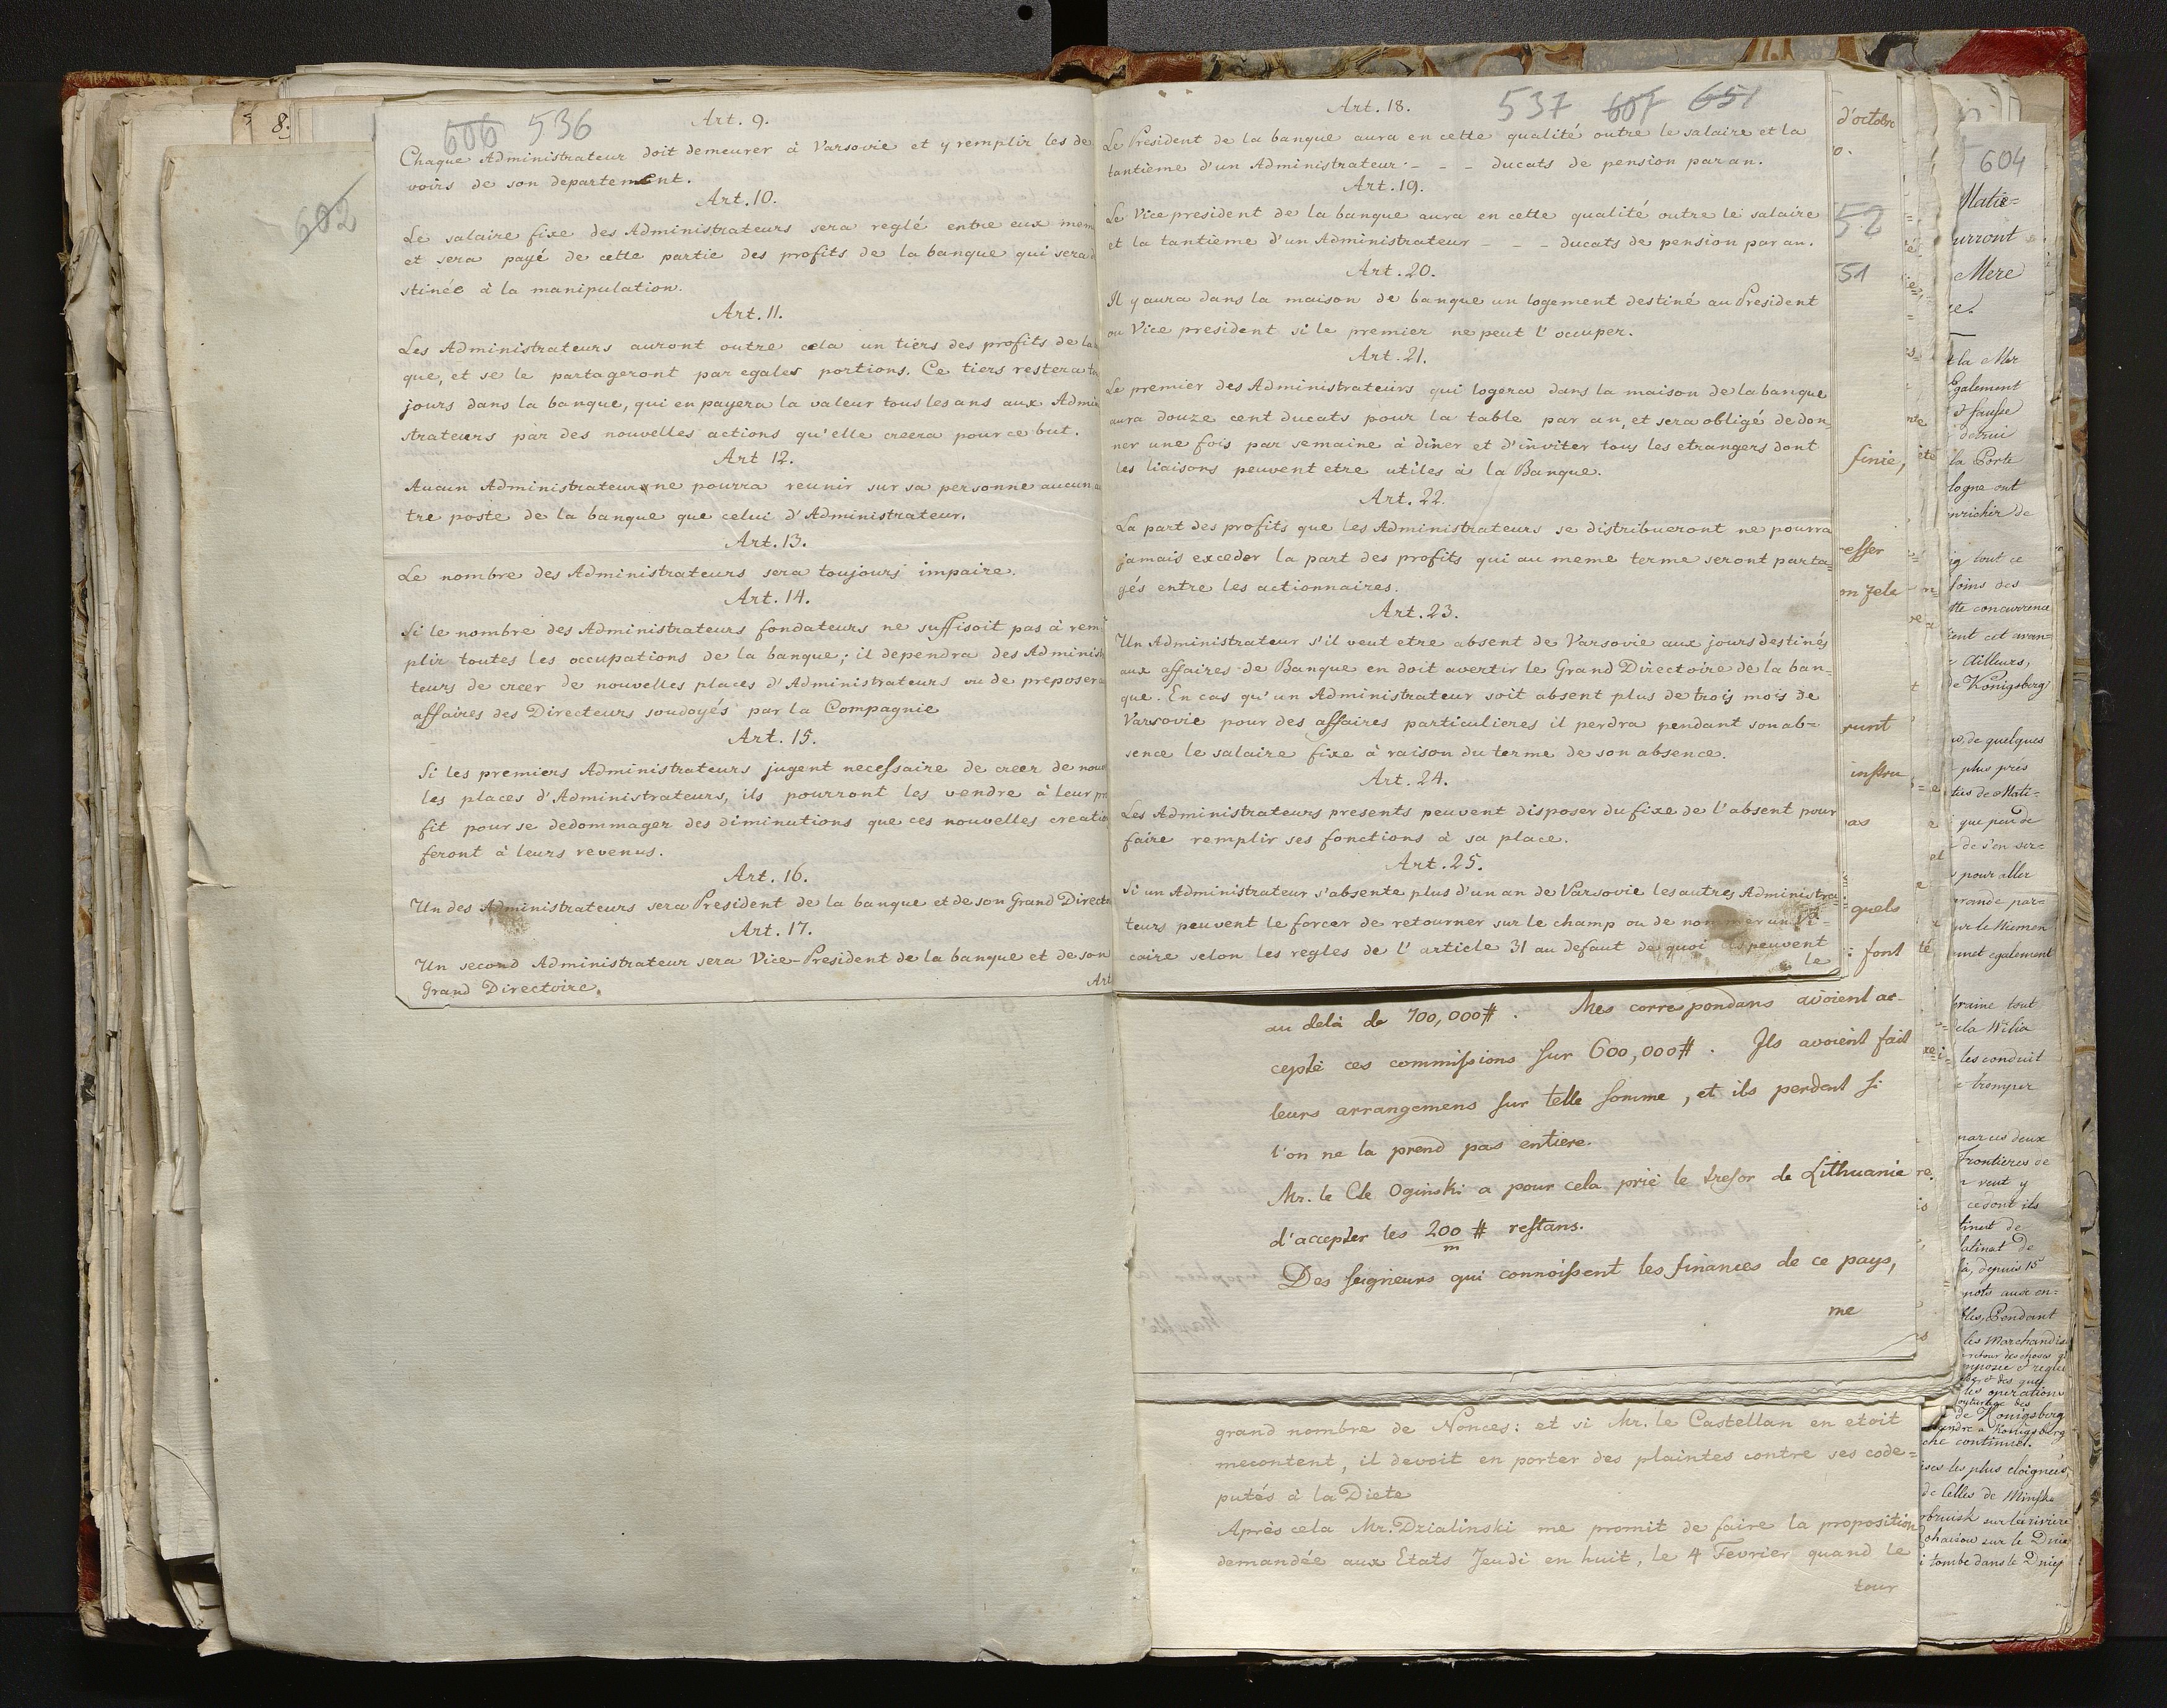 8.
602
606 536
Art. 9.
Chaque Administrateur doit demeurer à Varsovie et y remplir les de
voirs de son departement.
Art. 10.
Le salaire fixe des Administrateurs sera reglé entre eux mem
et sera payé de cette partie des profits de la banque qui sera d
stinée à la manipulation.
Art. 11.
Les Administrateurs auront outre cela un tiers des profits de la
que, et se le partageront par egales portions. Ce tiers restera to
jours dans la banque, qui en payera la valeur tous les ans aux Admi
strateurs par des nouvelles actions qu'elle creera pour ce but.
Art 12.
Aucun Administrateur ne pourra reunir sur sa personne aucun a
tre poste de la banque que celui d'Administrateur.
Art. 13.
Le nombre des Administrateurs sera toujours impaire.
Art. 14.
Si le nombre des Administrateurs fondateurs ne suffisoit pas à rem
plir toutes les occupations de la banque; il dependra des Administ
teurs de creer de nouvelles places d'Administrateurs ou de preposer a
affaires des Directeurs soudoyés par la Compagnie
Art. 15.
Si les premiers Administrateurs jugent necessaire de creer de nou
les places d'Administrateurs, ils pourront les vendre à leur pr
fit pour se dedommager des diminutions que ces nouvelles creatio
feront à leurs revenus.
Art. 16.
Un des Administrateurs sera President de la banque et de son Grand Directo
Art. 17.
Un second Administrateur sera Vice-President de la banque et de son
Grand Directoire.
Art
537 607 651
Art. 18.
Le President de la banque aura en cette qualité outre le salaire et la
tantieme d'un Administrateur - - - ducats de pension par an.
Art. 19.
Le Vice president de la banque aura en cette qualité outre le salaire
et la tantieme d'un Administrateur - - - ducats de pension par an.
Art. 20.
Il y aura dans la maison de banque un logement destiné au President
ou Vice president si le premier ne peut l'occuper.
Art. 21.
Le premier des Administrateurs qui logera dans la maison de la banque
aura douze cent ducats pour la table par an, et sera obligé de don=
ner une fois par semaine à diner et d'inviter tous les etrangers dont
les liaisons peuvent etre utiles à la Banque.
Art. 22.
La part des profits que les Administrateurs se distribueront ne pourra
jamais exceder la part des profits qui au meme terme seront parta=
gés entre les actionnaires.
Art. 23.
Un Administrateur s'il veut etre absent de Varsovie aux jours destinés
aux affaires de Banque en doit avertir le Grand Directoire de la ban=
que. En cas qu'un Administrateur soit absent plus de trois mois de
Varsovie pour des affaires particulieres il perdra pendant son ab=
sence le salaire fixe à raison du terme de son absence.
Art. 24.
Les Administrateurs presents peuvent disposer du fixe de l'absent pour
faire remplir ses fonctions à sa place.
Art. 25.
Si un Administrateur s'absente plus d'un an de Varsovie les autres Administra=
teurs peuvent le forcer de retourner sur le champ ou de nommer un Vi-
caire selon les regles de l'article 31 au defaut de quoi ils peuvent
le
au delà de 700,000#. Mes correspondans avoient ac-
cepté ces commissions sur 600,000#. Ils avoient fait
leurs arrangemens sur telle somme, et ils perdent si
l'on ne la prend pas entiere.
Mr. le Cte Oginski a pour cela prié le tresor de Lithuanie
d'accepter les 200/m # restans.
Des seigneurs qui connoissent les finances de ce pays,
me
grand nombre de Nonces: et si Mr. le Castellan en etoit
mecontent, il devoit en porter des plaintes contre ses code=
putés à la Diete
Après cela Mr. Dzialinski me promit de faire la proposition
demandée aux Etats Jeudi en huit, le 4 Fevrier quand le
tour
d'octobre
52
51
finie,
esser
m zele
runt
instru
as
quels
font
604
Matie=
urront
Mere
la Mer
Egalement
la Porte
logne ont
enrichir de
tout ce
soins des
tte concurrence
ient cet avan=
Ailleurs,
de Königsberg
de quelques
plus près
ties de Mati=
que peu de
de s'en ser=
pour aller
grande par=
sur le Niemen
met egalement
la Wilia
les conduit
tromper
par ces deux
Frontieres de
veut y
ce dont ils
tinat de
latinat de
depuis 15
nots aux en=
Pendant
les Marchandise
les operations
de Königsberg
che continuel.
les plus eloignées,
de Celles de Minsk
sur la riviere
sur le Dnie
tombe dans le Dniep